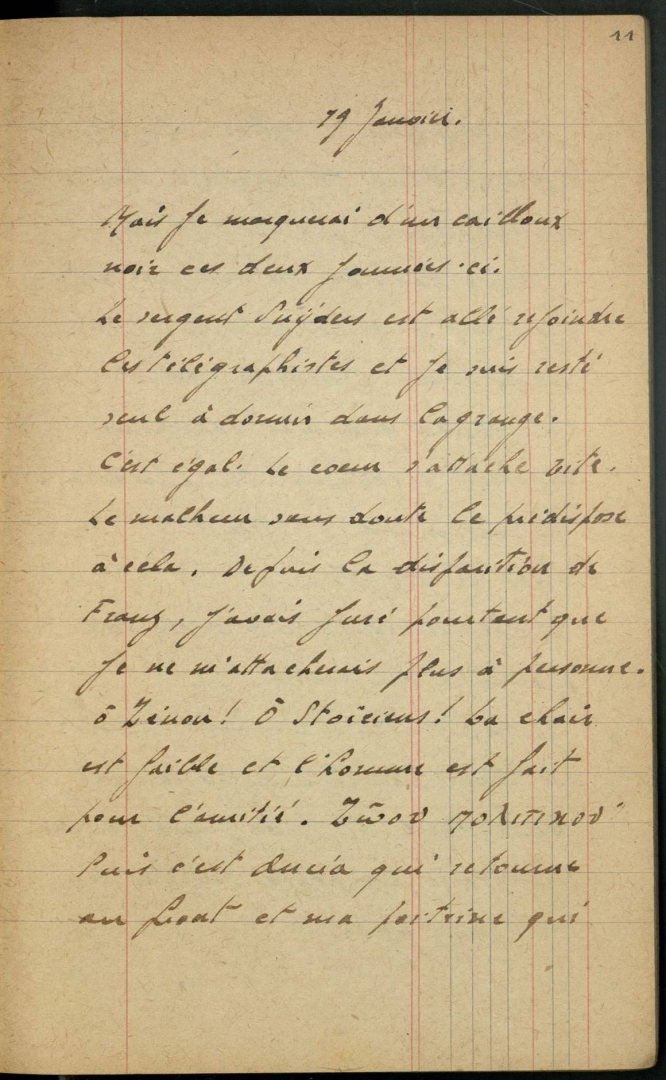 11
19 Janvier.
Mais je marquerai d'un cailloux
noir ces deux journées-ci.
Le sergent Snÿders est allé rejoindre
les télégraphistes et je suis resté
seul à dormir dans la grange.
C'est égal. Le coeur s'attache vite.
Le malheur sans doute le prédispose
à cela. Depuis la disparition de
Franz, j'avais juré pourtant que
je ne m'attacherais plus à personne.
ô Zénon! Ô Stoïciens! La chair
est faible et l'homme est fait
pour l'amitié. Ζῶον πολιτικον
Puis c'est qui retourne
au front et ma poitrine qui